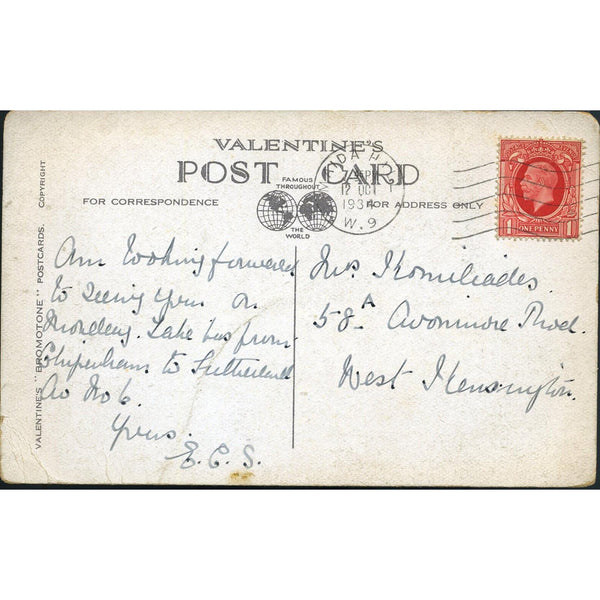 VALENTINE'S
POST CARD
FAMOUS
THROUGHOUT
THE
WORLD
FOR CORRESPONDENCE
FOR ADDRESS ONLY
VALENTINE'S "BROMOTONE" POSTCARDS. COPYRIGHT
7.45 PM
12 OCT
1934
W.9
ONE PENNY
1 1
Am looking forward
to seeing you on
Monday. Take bus from
Chippenham to Sutherland
Av No 6.
Yours.
E.C.S.
Mrs
58A Avonmore Road.
West Kensington.